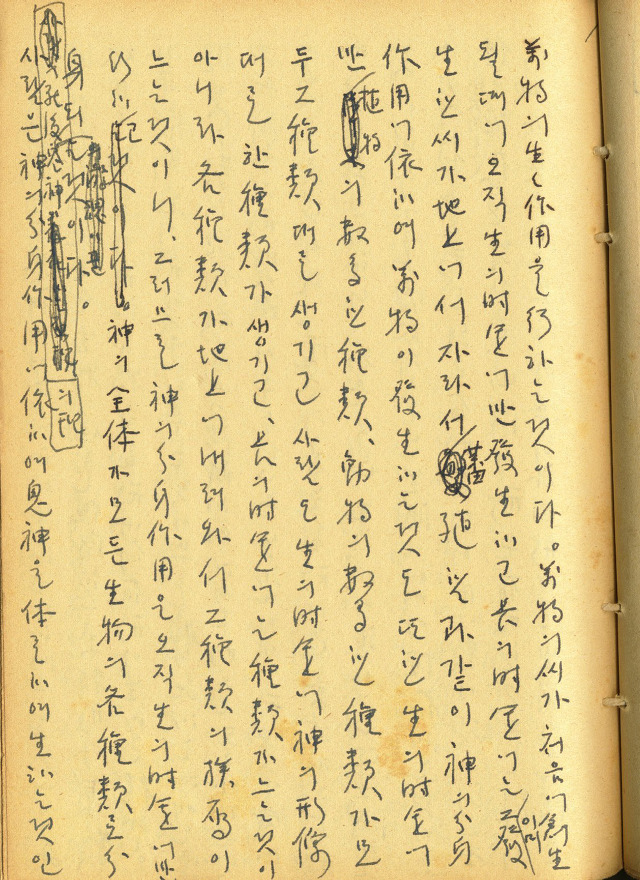 萬物의 生生作用을 行하는 것이다。萬物의 씨가 처음에 創生
될 때에 오직 生의 時運에만 發生하고 長의 時運에는 이미 發
生한 씨가 地上에서 자라서 蕃殖함과 같이 神의 分身
作用에 依하여 萬物이 發生하는 것도 또한 生의 時運에
만 植物의 數多한 種類、動物의 數多한 種類가 모
두 그 種類대로 생기고 사람도 生의 時運에 神의 形像
대로 한 種類가 생기고、長의 時運에는 種類가 느는 것이
아니라 各 種類가 地上에 내려와서 그 種類의 族屬이
느는 것이니、그러므로 神의 分身作用은 오직 生의 時運에만
行하 神의 全体가 모든 生物의 各 種類로 分
身되는 것이다。
사람은 神의 分身作用에 依하여 鬼神을 体로 하여 生하는 것인